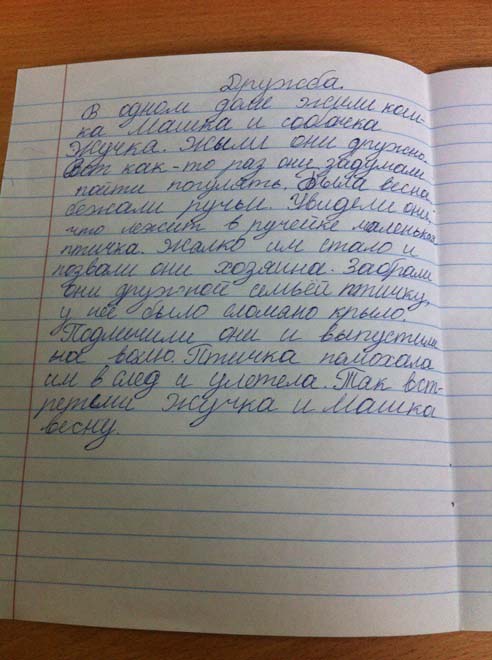 Дружба.
В одном доме жили кош-
ка Машка и собачка
Жучка. Жыли они дружно.
Вот как-то раз они задумали
пойти погулять. Была весна
бежали ручьи. Увидели они,
что лежит в ручейке маленькая
птичка. Жалко им стало и
позвали они хозяина. Забрали
они дружной семьёй птичку,
у неё было сломано крыло.
Подличили они и выпустили
на волю. Птичка помохала
им в след и улетела. Так вст-
ретели Жучка и Машка
весну.